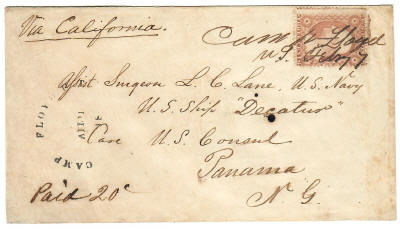 Via California.
Camp Floyd
U.T. Feby 7
Asst Surgeon L. C. Lane, U.S. Navy
U.S. Ship "Decatur"
Care U.S. Consul
Panama
N. G.
CAMP FLO
Paid 20c